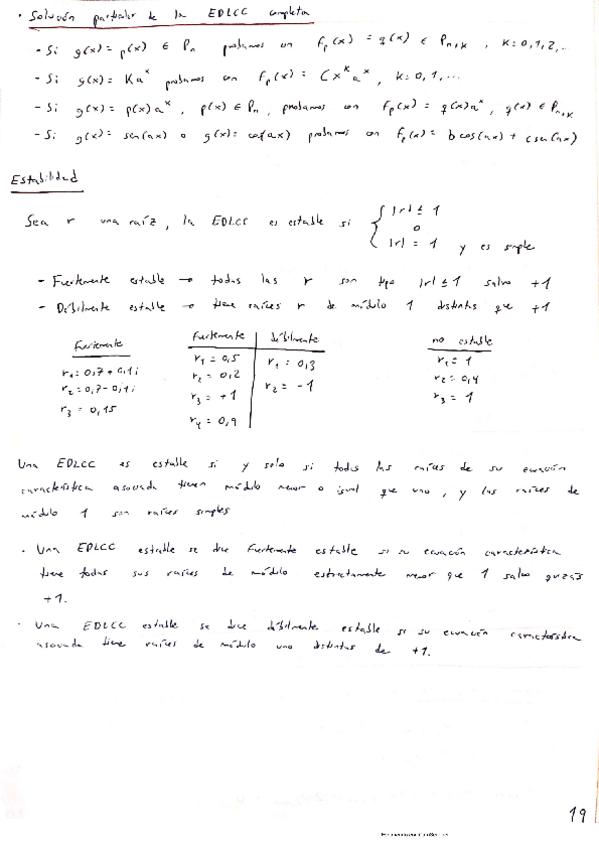 · Solución particular de la EDLCC completa
- Si g(x) = p(x) ∈ Pn probamos con fp(x) = q(x) ∈ Pn+k , k = 0,1,2,..
- Si g(x) = K a^x probamos con fp(x) = C x^k a^x , k = 0,1,...
- Si g(x) = p(x) a^x , p(x) ∈ Pn, probamos con fp(x) = q(x) a^x, q(x) ∈ Pn+k
- Si g(x) = sen(ax) o g(x) = cos(ax) probamos con fp(x) = b cos(ax) + c sen(ax)
Estabilidad
Sea r una raíz, la EDLCC es estable si { |r| ≤ 1
o
|r| = 1 y es simple
- Fuertemente estable → todas las r son tipo |r| ≤ 1 salvo +1
- Débilmente estable → tiene raíces r de módulo 1 distintas que +1
Fuertemente
r1 = 0,7 + 0,1i
r2 = 0,7 - 0,1i
r3 = 0,15
Fuertemente | débilmente
r1 = 0,5 | r1 = 0,3
r2 = 0,2 | r2 = -1
r3 = +1
r4 = 0,9
no estable
r1 = 1
r2 = 0,4
r3 = 1
Una EDLCC es estable si y solo si todas las raíces de su ecuación
característica asociada tienen módulo menor o igual que uno, y las raíces de
módulo 1 son raíces simples
· Una EDLCC estable se dice fuertemente estable si su ecuación característica
tiene todas sus raíces de módulo estrictamente menor que 1 salvo quizás
+1.
· Una EDLCC estable se dice débilmente estable si su ecuación característica
asociada tiene raíces de módulo uno distintas de +1.
19